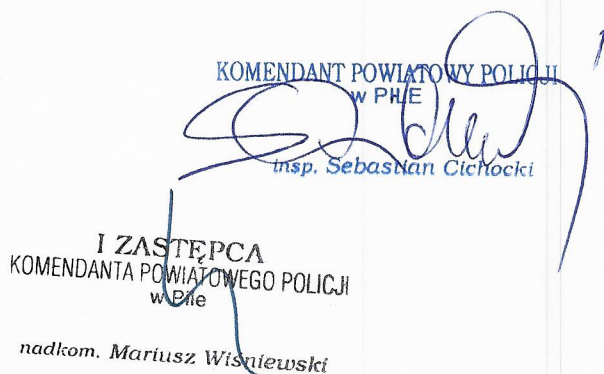 KOMENDANT POWIATOWY POLICJI
w PILE
insp. Sebastian Cichocki
I ZASTĘPCA
KOMENDANTA POWIATOWEGO POLICJI
w Pile
nadkom. Mariusz Wiśniewski